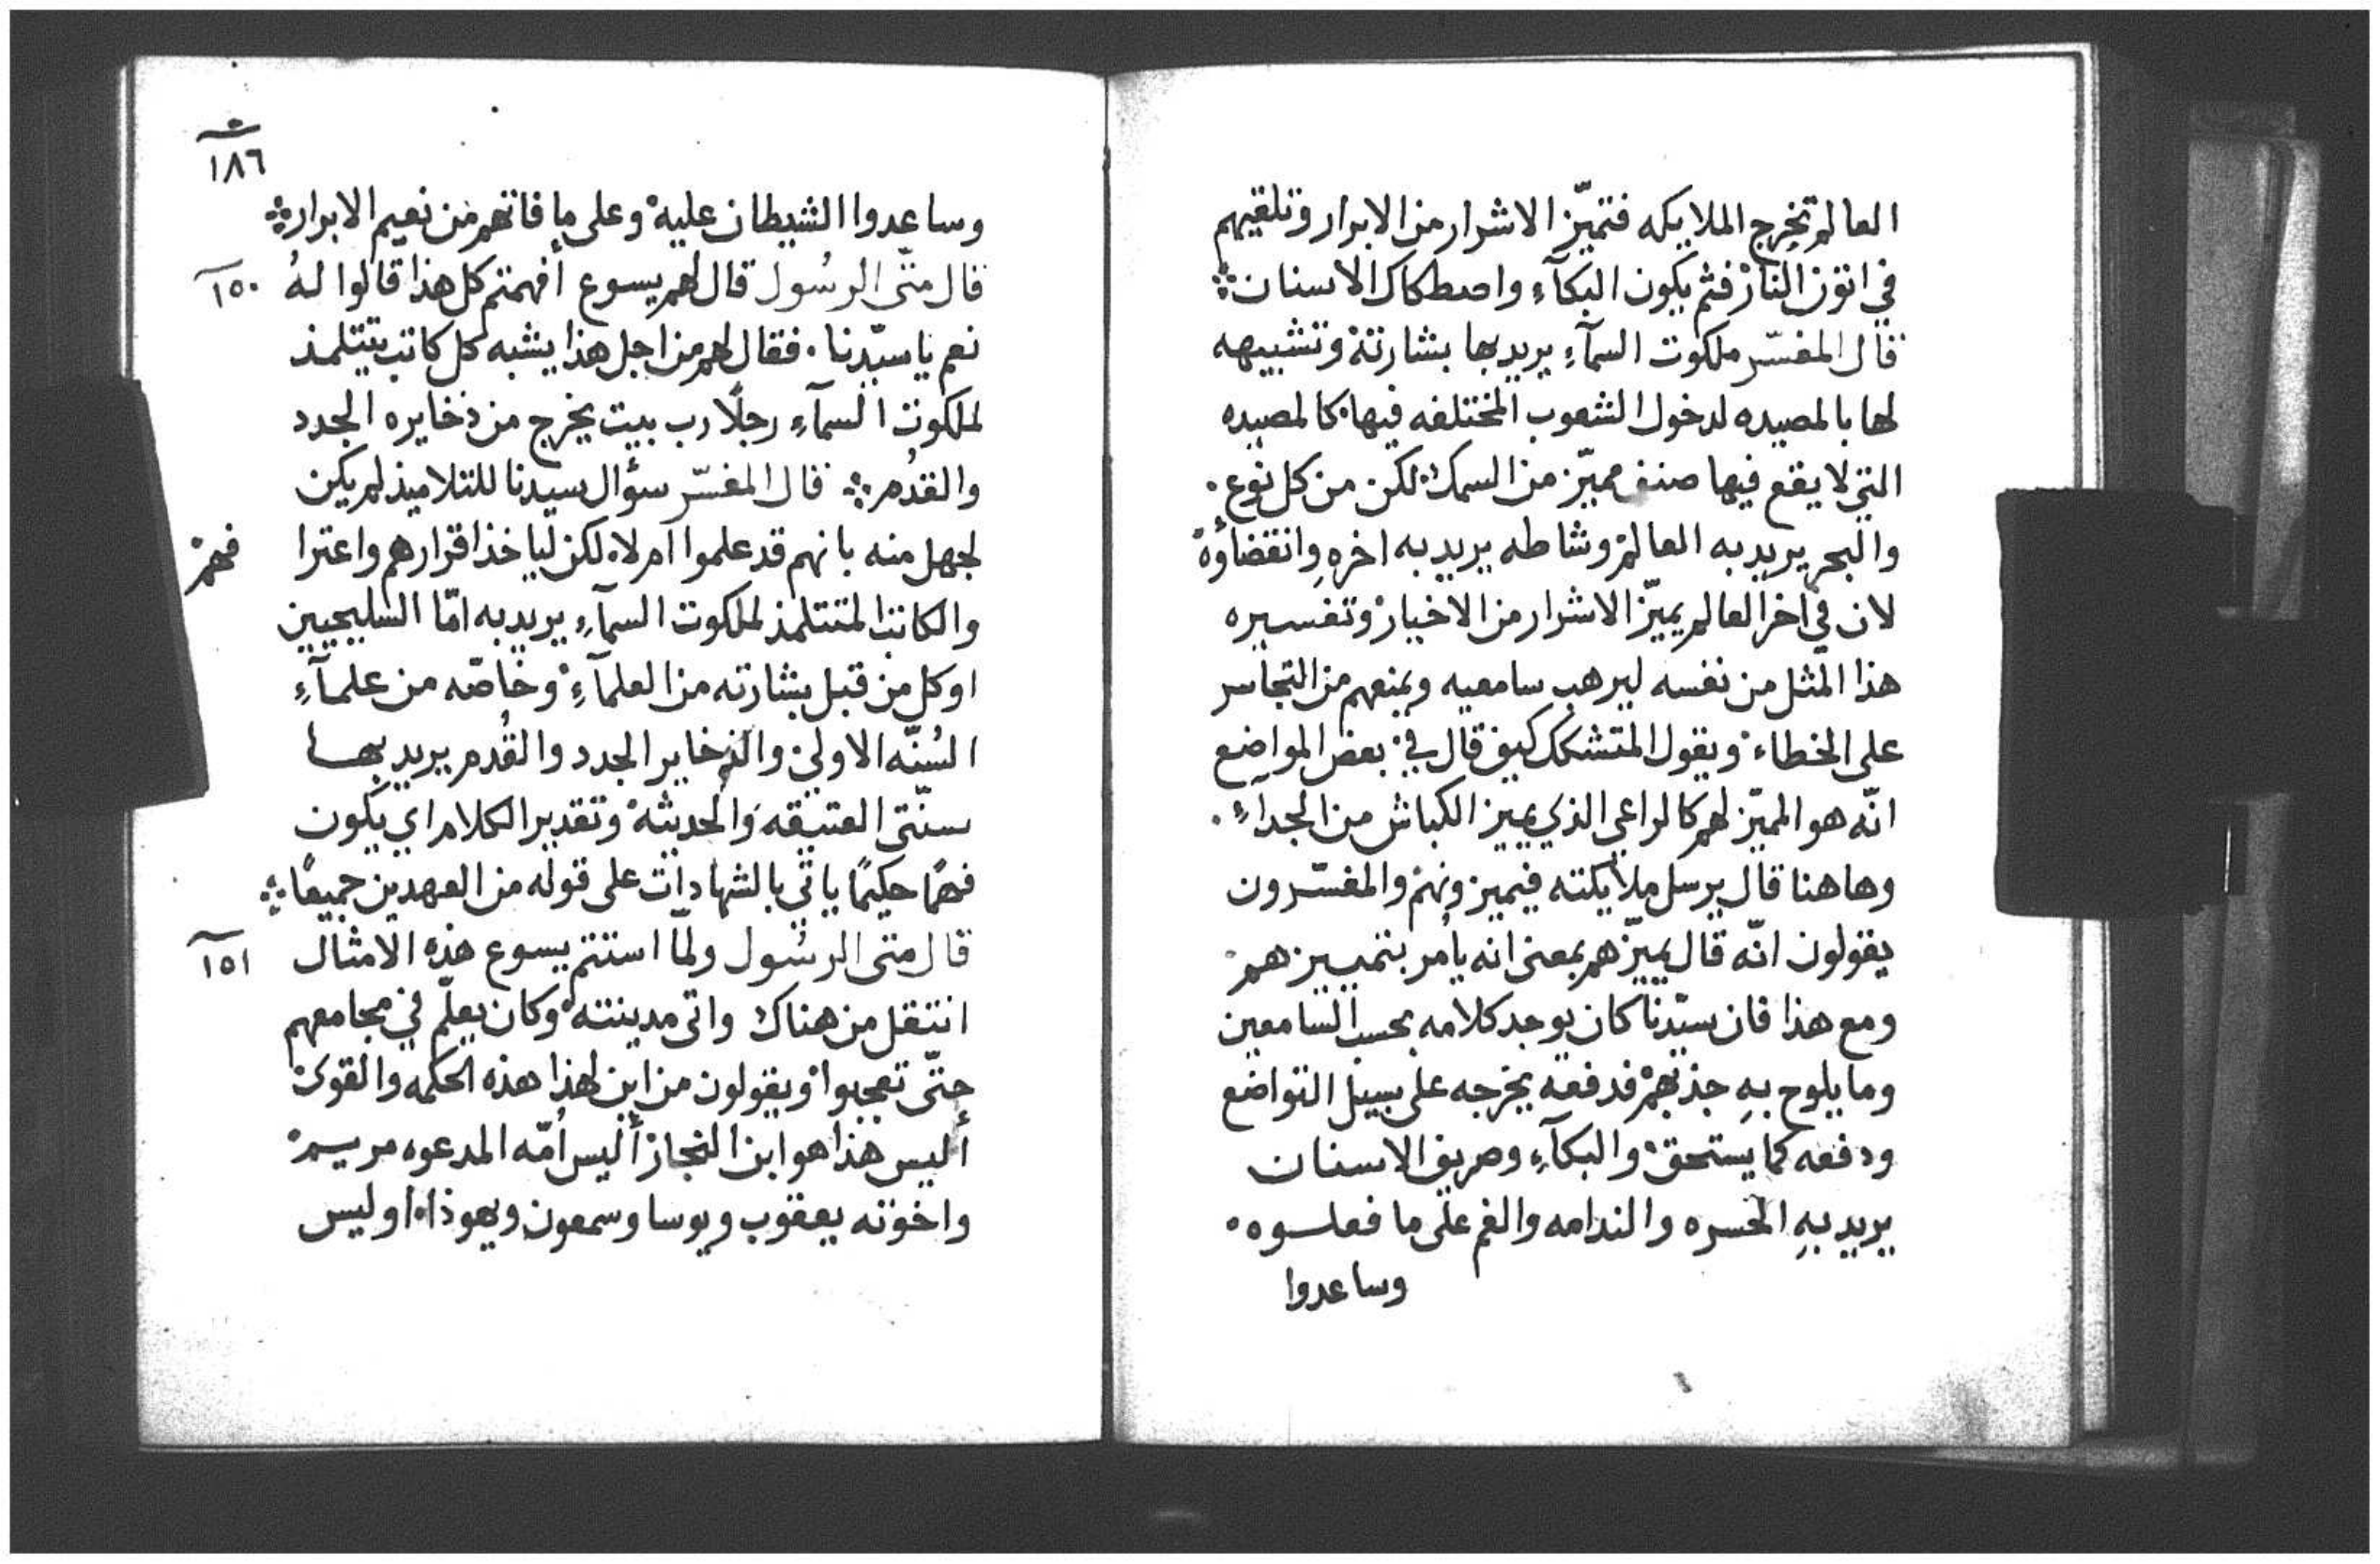 العالم تخرج الملايكه فتميّز الاشرار من الابرار وتلقيهم
في اتون النار فثم يكون البكآء واصطكاك الاسنان
قال المفسّر ملكوت السمآء يريد بها بشارته وتشبيهه
لها بالمصيده لدخول الشعوب المختلفه فيها كالمصيده
التي لا يقع فيها صنف مميّز من السمك لكن من كل نوع.
والبحر يريد به العالم وشاطه يريد به اخرهِ وانقضاؤه
لان في اخر العالم يميّز الاشرار من الاخيار وتفسيره
هذا المثل من نفسه ليرهب سامعيه ويمنعهم من التجاسر
على الخطاء ويقول المتشكك كيف قال في بعض المواضع
انّه هو المميّز لهم كالراعي الذي يميز الكباش من الجدآء.
وهاهنا قال يرسل ملايكته فيميزونهم والمفسّرون
يقولون انّه قال يميّزهم بمعنى انه يأمر بتمييزهم
ومع هذا فان سيّدنا كان يوجد كلامه بحسب السامعين
وما يلوح بهِ جذبهم فدفعه يخرجه على سبيل التواضع
ودفعه كما يستحق والبكآء وصريف الاسنان
يريد بهِ الحسره والندامه والغم على ما فعلوه
وساعدوا
١٨٦
وساعدوا الشيطان عليه وعلى ما فاتهم من نعيم الابرار
قال متّى الرسُول قال لهم يسوع أفهمتم كل هذا قالوا لهُ
١٥٠
نعم يا سيّدنا. فقال لهم من اجل هذا يشبه كل كاتب يتتلمذ
لملكوت السمآء رجلًا رب بيت يخرج من ذخايره الجدد
والقدُم قال المفسّر سؤال سيدنا للتلاميذ لم يكن
لجهل منه بانهم قد علموا ام لا لكن لياخذ اقرارهم واعترا
فهم
والكاتب المتتلمذ لملكوت السمآء يريد به امّا السليحيين
او كل من قبل بشارته من العلمآء وخاصّه من علمآء
السُنّه الاولى والذخاير الجدد والقُدم يريد بها
سنّتي العتيقه والحديثه وتقدير الكلام اي يكون
فهمًا حكيمًا ياتي بالشهادات على قوله من العهدين جميعًا
قال متى الرسُول ولمّا استتم يسوع هذه الامثال
١٥١
انتقل من هناك واتى مدينته وكان يعلّم في مجامعهم
حتّى تعجبوا ويقولون من اين لهذا هذه الحكمه والقوى
أليس هذا هو ابن النجار أليس اُمّه المدعوه مريم
واخوته يعقوب ويوسا وسمعون ويهوذا اوليس